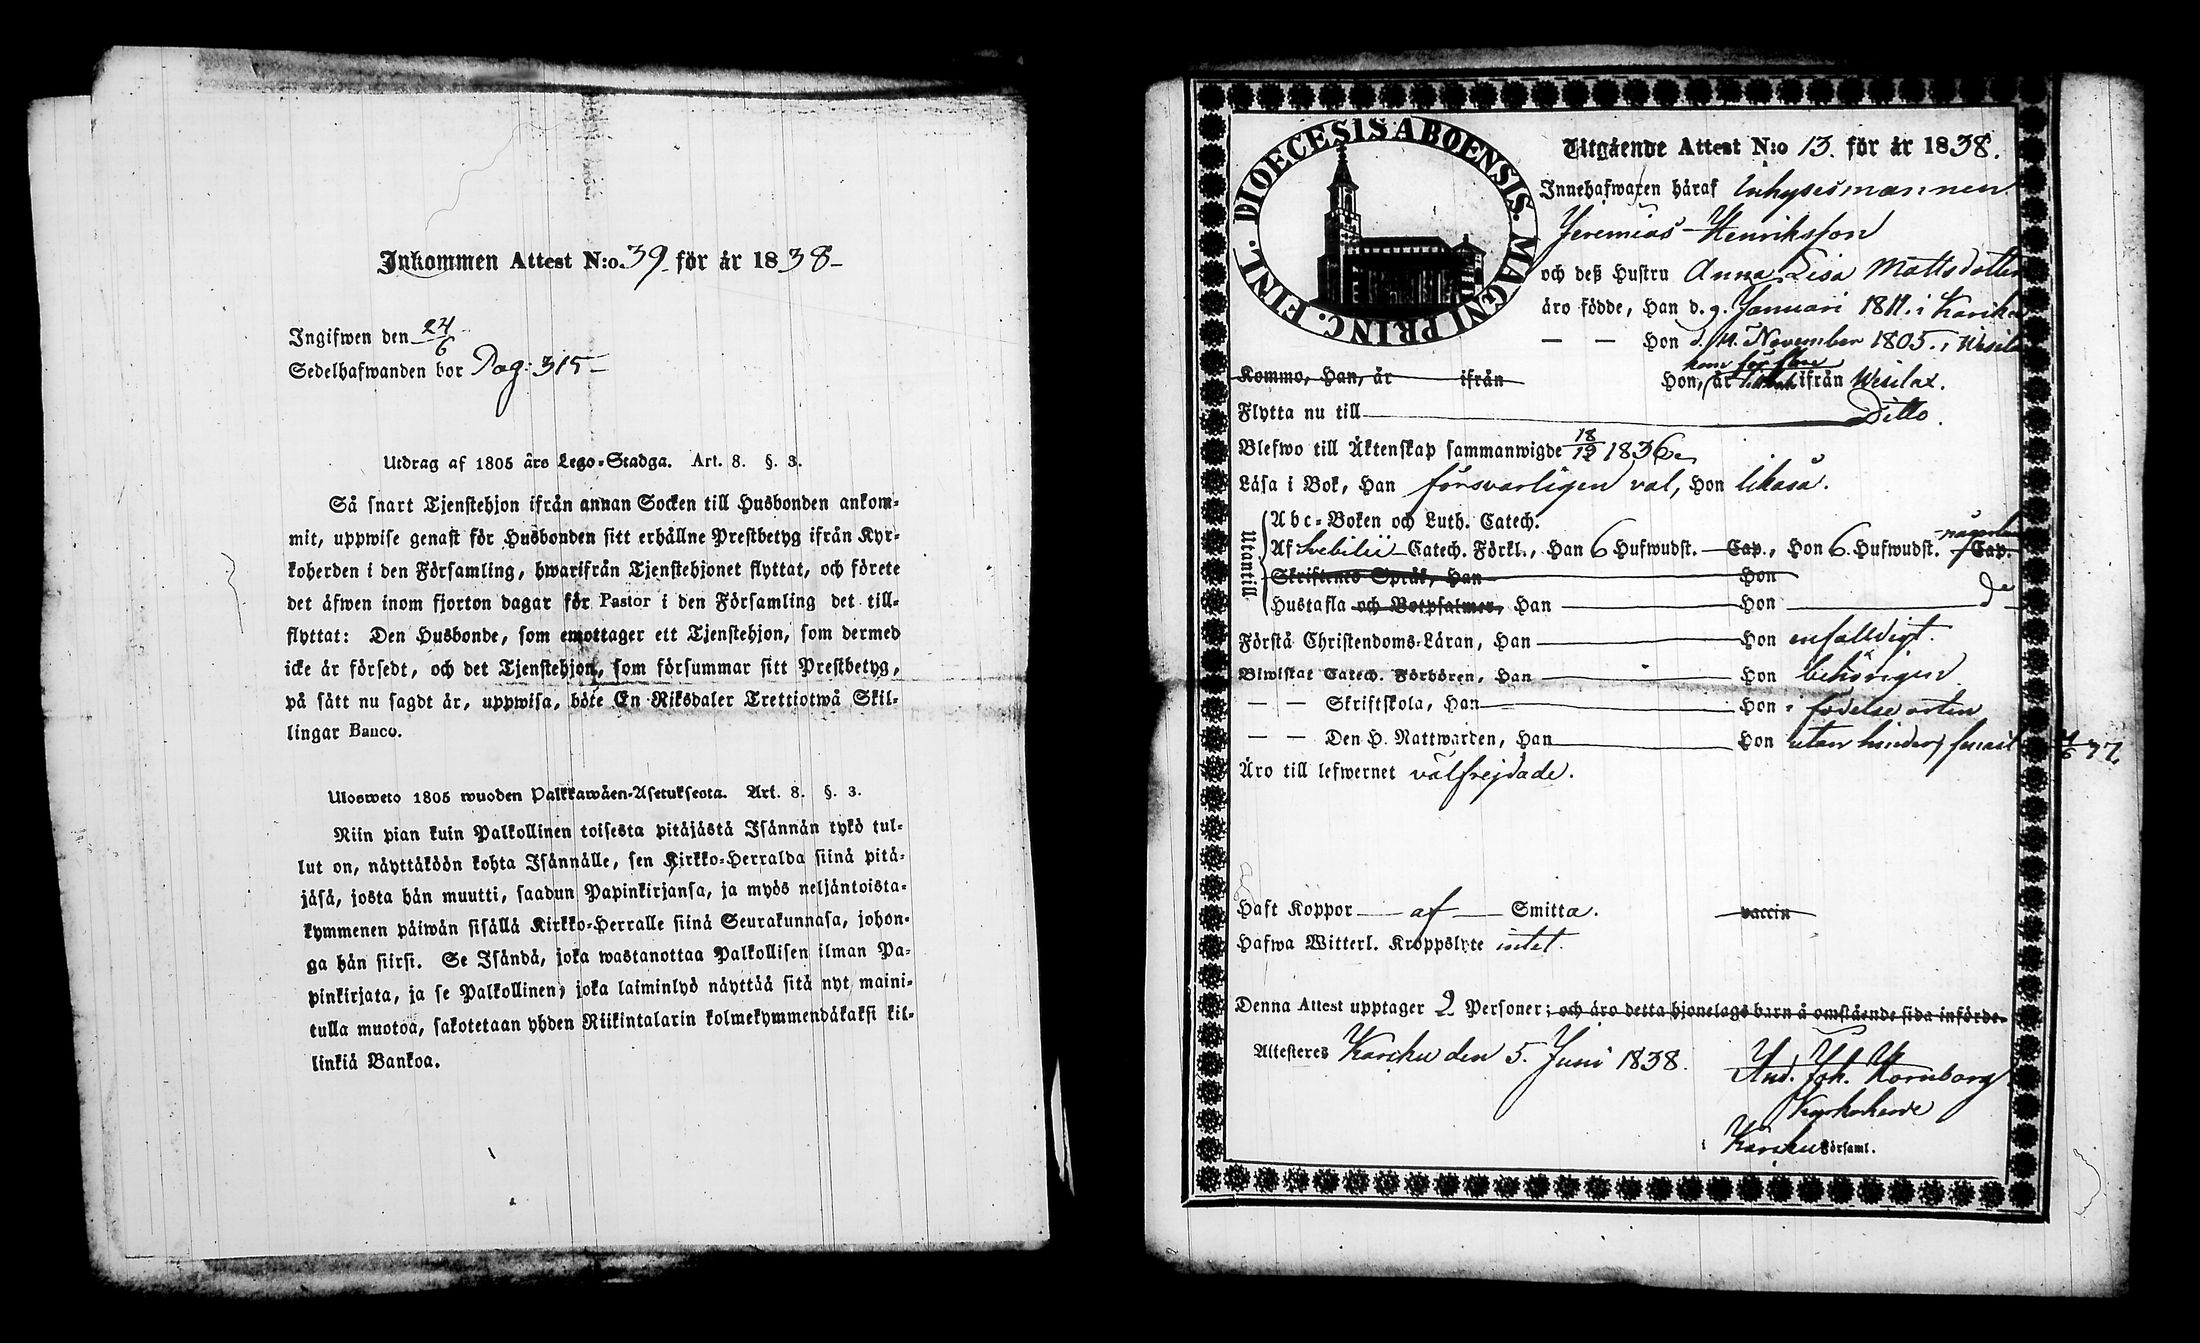 Inkommen Attest N:o 39 för år 1838
Ingifwen den 24/6
Sedelhafwanden bor Pag: 315
Utdrag af 1805 års Lego-Stadga. Art. 8. §. 3.
Så snart Tjenstehjon ifrån annan Socken till Husbonden ankom-
mit, uppwise genast för Husbonden sitt erhållne Prestbetyg ifrån Kyr-
koherden i den Församling, hwarifrån Tjenstehjonet flyttat, och förete
det äfwen inom fjorton dagar för Pastor i den Församling det till-
flyttat: Den Husbonde, som emottager ett Tjenstehjon, som dermed
icke är försedt, och det Tjenstehjon, som försummar sitt Prestbetyg,
på sätt nu sagdt är, uppwisa, böte En Riksdaler Trettiotwå Skil-
lingar Banco.
Ulosweto 1805 wuoden Palkkawäen-Asetuksesta. Art. 8. §. 3.
Niin pian kuin Palkollinen toisesta pitäjästä Isännän tykö tul-
lut on, näyttäköön kohta Isännälle, sen Kirkko-Herralda siinä pitä-
jäsä, josta hän muutti, saadun Papinkirjansa, ja myös neljäntoista-
kymmenen päiwän sisällä Kirkko-Herralle siinä Seurakunnasa, johon-
ga hän siirsi. Se Isändä, joka wastanottaa Palkollisen ilman Pa-
pinkirjata, ja se Palkollinen, joka laiminlyö näyttää sitä nyt maini-
tulla muotoa, sakotetaan yhden Riikintalarin kolmekymmendäkaksi kil-
linkiä Bankoa.
DIOECESIS ABOENSIS. MAGNI PRINC. FINL.
Utgående Attest N:o 13. för år 1838.
Innehafwaren häraf Inhysesmannen
Jeremias Henriksson
och deß Hustru Anna Lisa Mattsdotter
äro födde, Han d. 9. Januari 1811. i Karku
— — Hon d. 11. November 1805. i Wesila
Kommo, Han, år ifrån Hon, år ifrån Wesilax.
Flytta nu till Ditto.
Blefwo till Äktenskap sammanwigde 18/12 1836
Läsa i Bok, Han försvarligen val, Hon likaså.
Utantill
Abc-Boken och Luth. Catech.
Af Svebilii Catech. Förkl., Han 6 Hufwudst. Cap., Hon 6. Hufwudst. Cap.
Skriftenes Språk, Han Hon
Hustafla och Botpsalmer, Han Hon de
Förstå Christendoms-Läran, Han Hon enfalldigt.
Biwistat Catech. Förhören, Han Hon behörigen
— — Skriftskola, Han Hon i födelse orten
— — Den H. Nattwarden, Han Hon utan hinder, senast
Äro till lefwernet välfrejdade.
Haft Koppor af Smitta. vaccin
Hafwa Witterl. Kroppslyte intet.
Denna Attest upptager 2 Personer; och äro detta hjonelags barn å omstående sida införde.
Attesteres Karku den 5. Juni 1838.
And. Joh. Kornborg
Kyrkoherde
i Karku Församl.